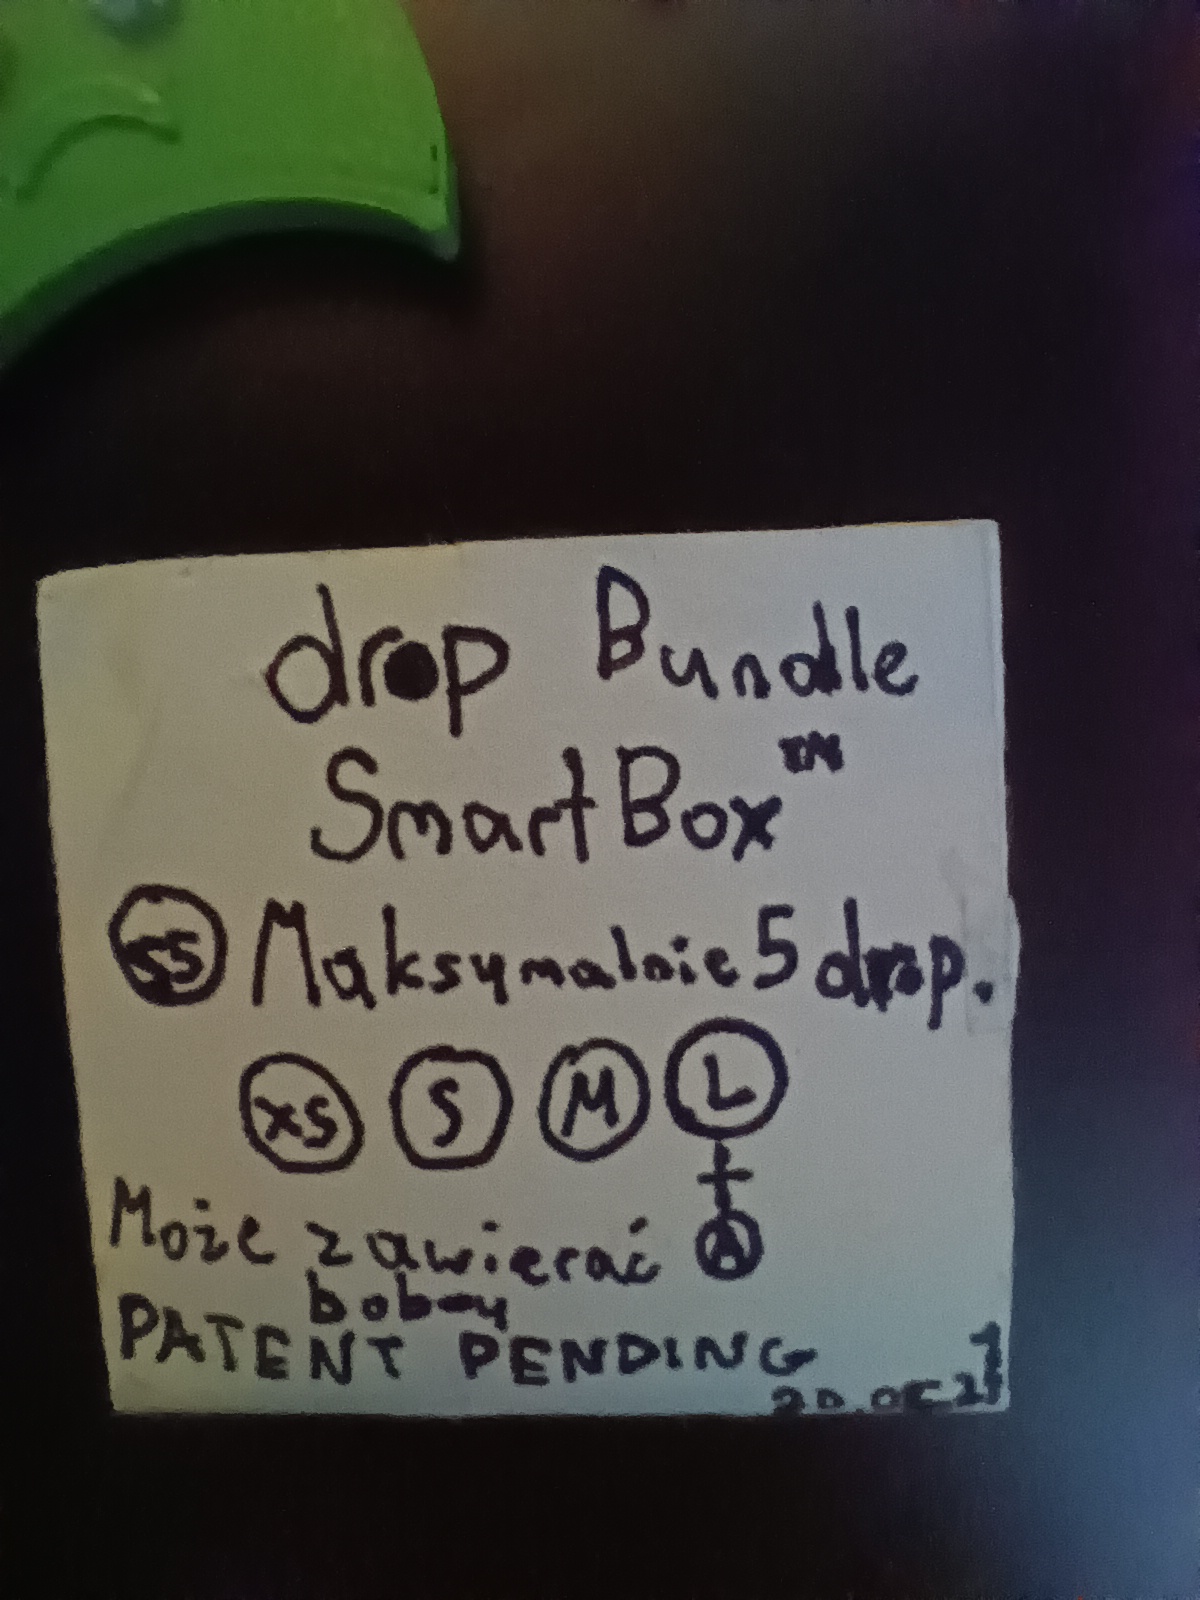 drop Bundle
SmartBox™
SS Maksymalnie 5 drop.
XS S M L
+
Może zawierać A
PATENT PENDING